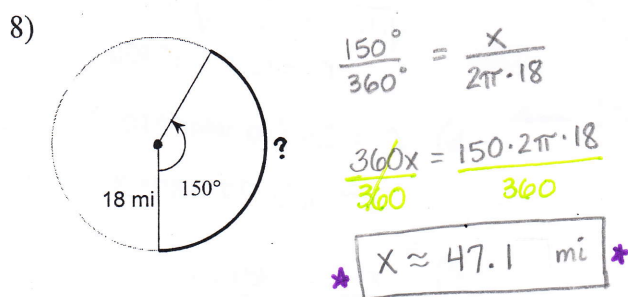 8)
18 mi
150°
?
150° / 360° = x / 2π·18
360x / 360 = 150·2π·18 / 360
* x ≈ 47.1 mi *